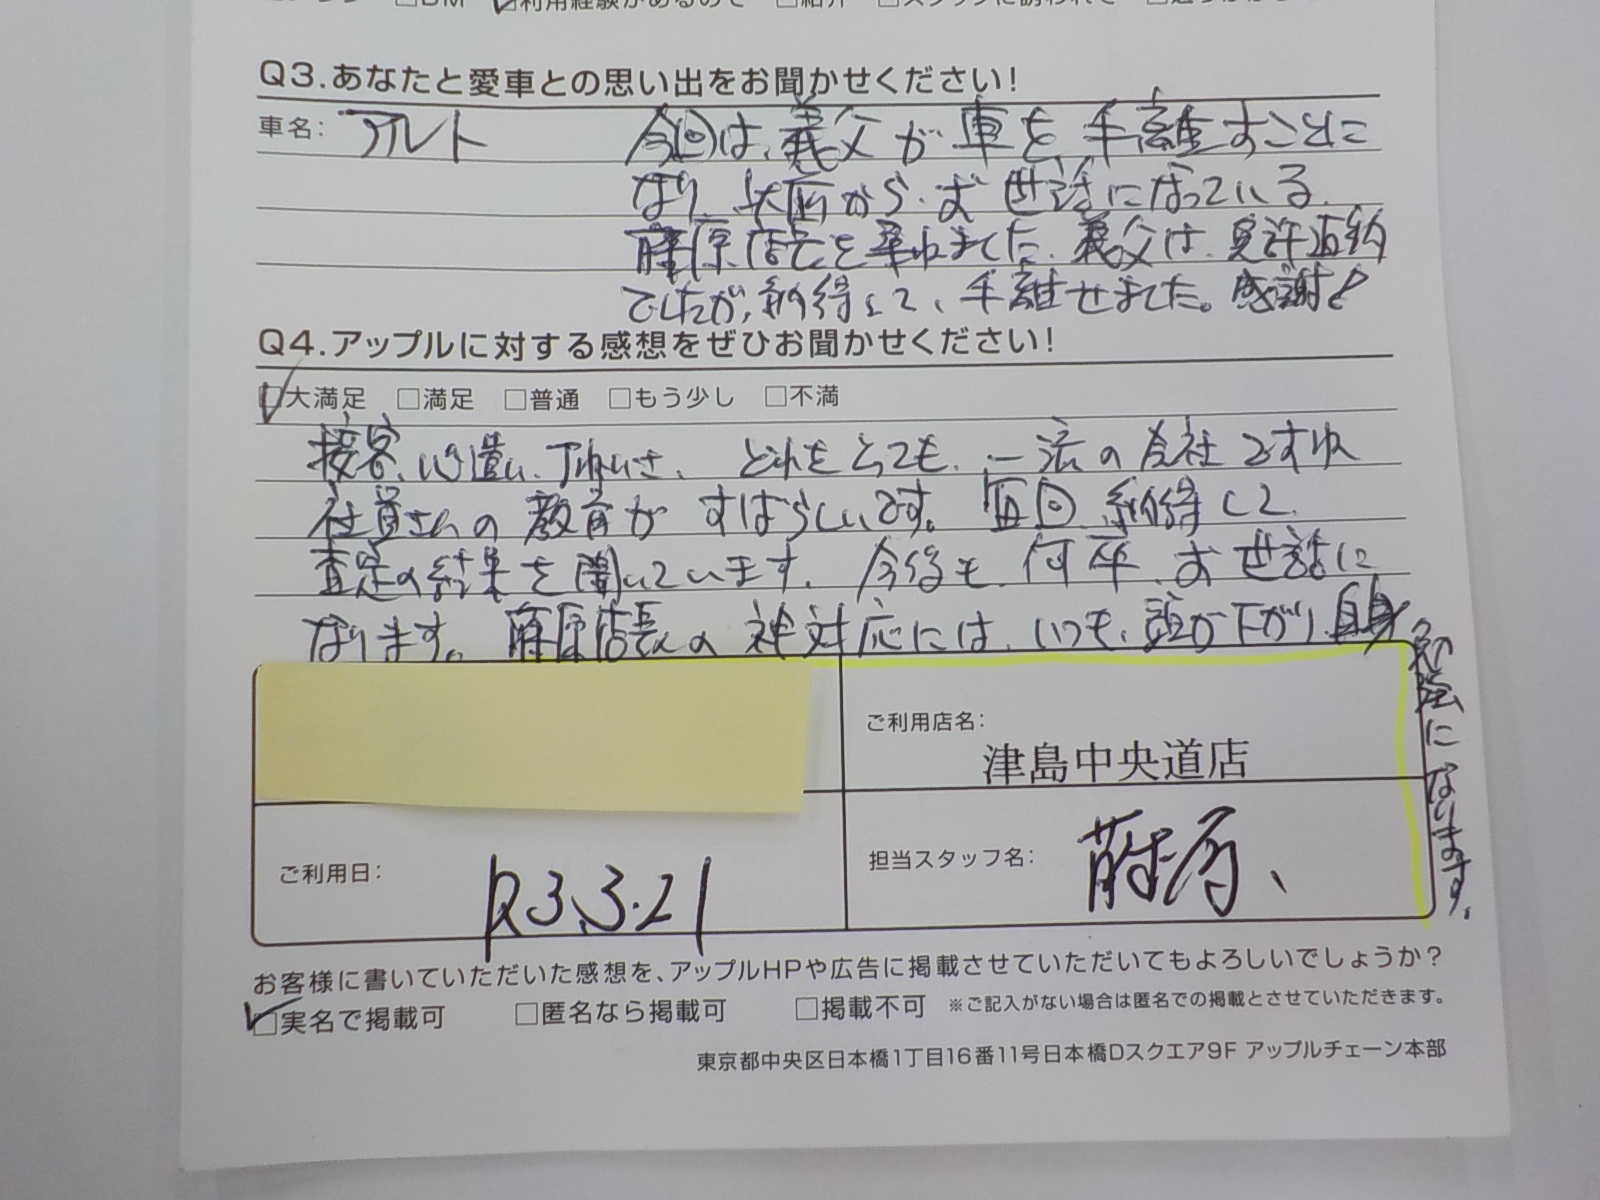 □DM ☑利用経験があるので □紹介 □スタッフに誘われて
Q3.あなたと愛車との思い出をお聞かせください!
車名: アルト 今回は、義父が車を手離すことに
なり、以前から、お世話になっている
藤原店長を尋ねました。義父は、免許返納
でしたが、納得して、手離せました。感謝!
Q4.アップルに対する感想をぜひお聞かせください!
☑大満足 □満足 □普通 □もう少し □不満
接客、心遣い、丁ねいさ、どれをとっても、一流の会社ですね
社員さんの教育がすばらしいです。毎回納得して
査定の結果を聞いています。今後も、何卒、お世話に
なります。藤原店長の神対応には、いつも、頭が下がり、自身
勉強になります。
ご利用店名:
津島中央道店
ご利用日: R3.3.21
担当スタッフ名: 藤原、
お客様に書いていただいた感想を、アップルHPや広告に掲載させていただいてもよろしいでしょうか?
☑実名で掲載可 □匿名なら掲載可 □掲載不可 ※ご記入がない場合は匿名での掲載とさせていただきます。
東京都中央区日本橋1丁目16番11号日本橋Dスクエア9F アップルチェーン本部